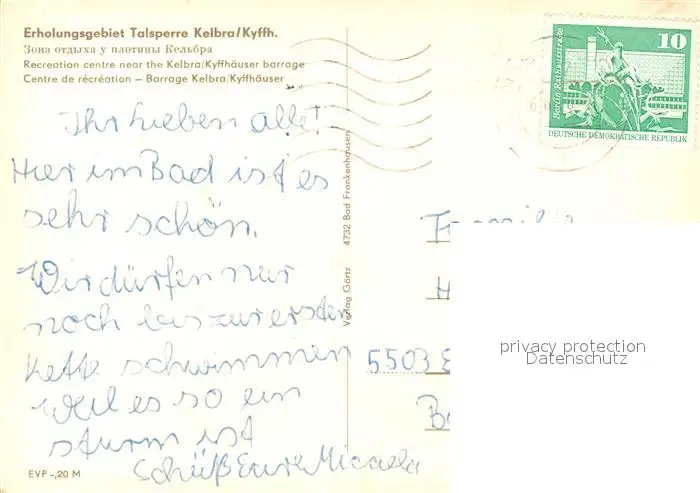 Erholungsgebiet Talsperre Kelbra/Kyffh.
Зона отдыха у плотины Кельбра
Recreation centre near the Kelbra/Kyffhäuser barrage
Centre de récréation – Barrage Kelbra/Kyffhäuser
Ihr lieben alle!
Hier im Bad ist es
sehr schön.
Wir dürfen nur
noch bis zur ersten
Kette schwimmen
weil es so ein
sturm ist
Schüß Eure Micaela
EVP –,20 M
Verlag Görtz 4732 Bad Frankenhausen
10
Berlin, Rathausstraße
DEUTSCHE DEMOKRATISCHE REPUBLIK
Familie
H
5503 E
B
privacy protection
Datenschutz